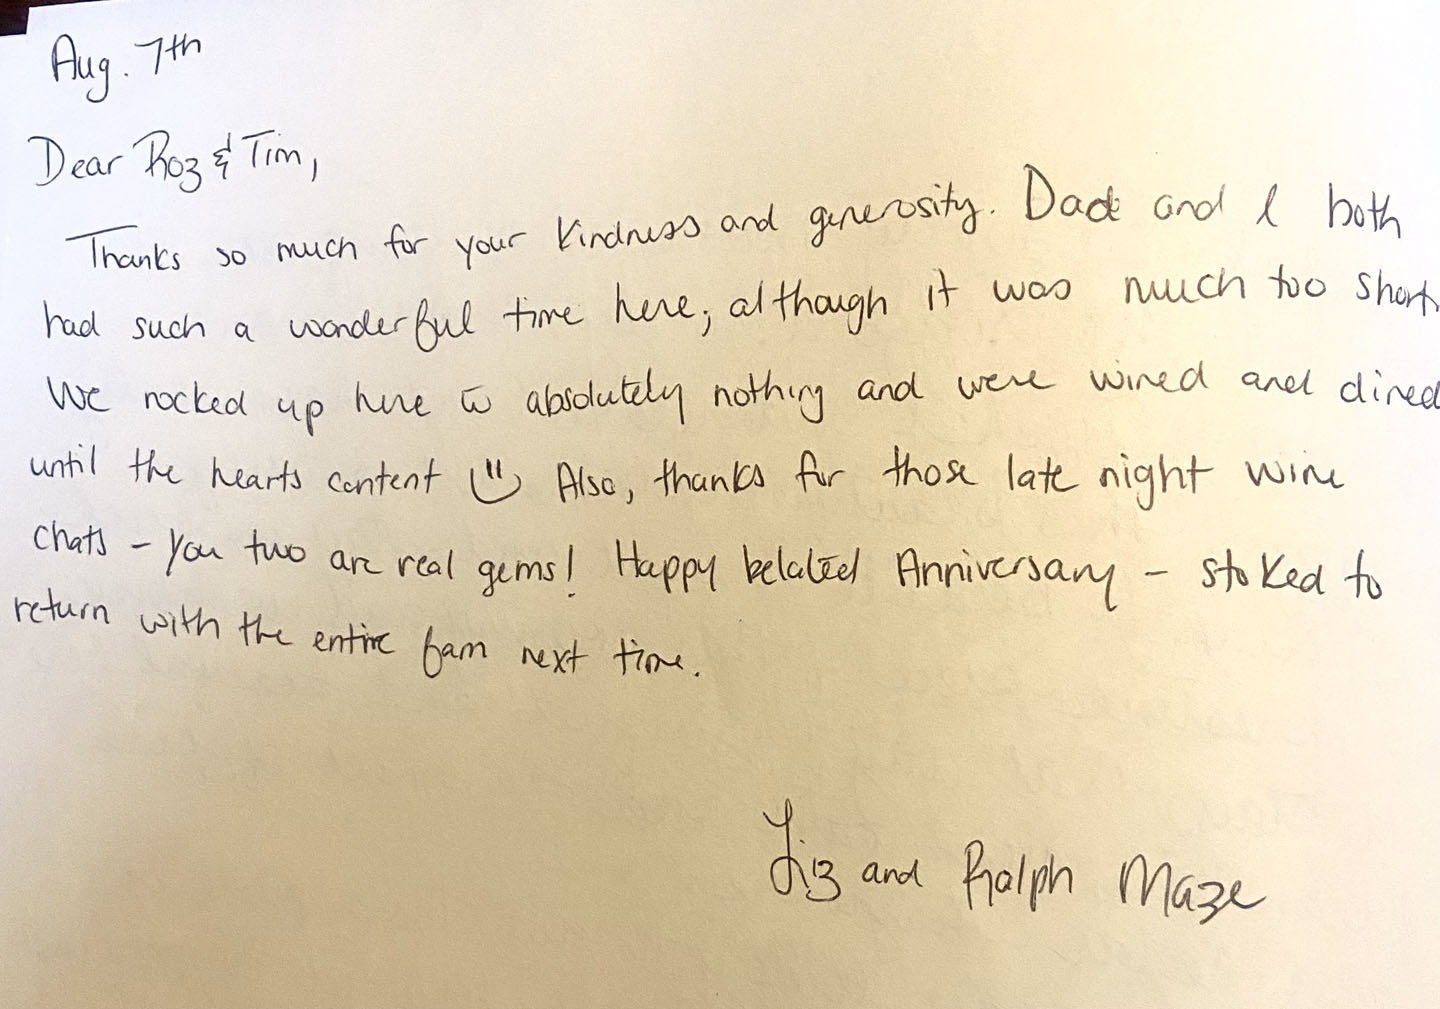 Aug. 7th
Dear Roz & Tim,
Thanks so much for your kindness and generosity. Dad and I both
had such a wonderful time here, although it was much too short.
We rocked up here to absolutely nothing and were wined and dined
until the hearts content :) Also, thanks for those late night wine
chats - you two are real gems! Happy belated Anniversary - stoked to
return with the entire fam next time.
Liz and Ralph Maze